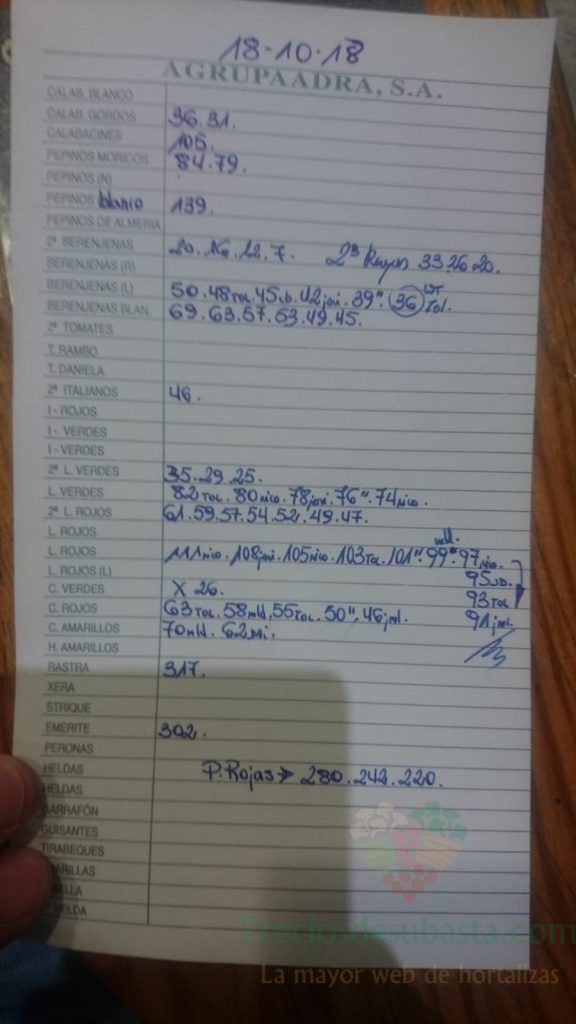 18-10-18
AGRUPAADRA, S.A.
CALAB. BLANCO
CALAB. GORDOS 36.31.
CALABACINES 105.
PEPINOS MORICOS 84.79.
PEPINOS (N)
PEPINOS blanco 139.
PEPINOS DE ALMERIA
2ª BERENJENAS 20.16.12.7. 2ª Rayas 33.26.20.
BERENJENAS (R)
BERENJENAS (L) 50.48Tol.45sb.42javi.39". 36 Tol.
BERENJENAS BLAN. 69.63.57.53.49.45.
2ª TOMATES
T. RAMBO
T. DANIELA
2ª ITALIANOS 46.
I - ROJOS
I - VERDES
I - VERDES
2ª L. VERDES 35.29.25.
L. VERDES 82Tol. 80nico.78javi.76".74nico.
2ª L. ROJOS 61.59.57.54.52.49.47.
L. ROJOS mld.
L. ROJOS 111nico.108javi.105nico.103Tol.101".99".97nico.
L. ROJOS (L) 95sb.
C. VERDES X 26. 93Tol
C. ROJOS 63Tol. 58mld,55Tol.50",46jml. 91jml.
C. AMARILLOS 70mld. 62
H. AMARILLOS
RASTRA 317.
XERA
STRIQUE
EMERITE 302.
PERONAS
HELDAS P.Rojas → 280.242.220.
HELDAS
GARRAFÓN
GUISANTES
TIRABEQUES
ARILLAS
ELLA
HELDA
Preciosdesubasta.com
La mayor web de hortalizas